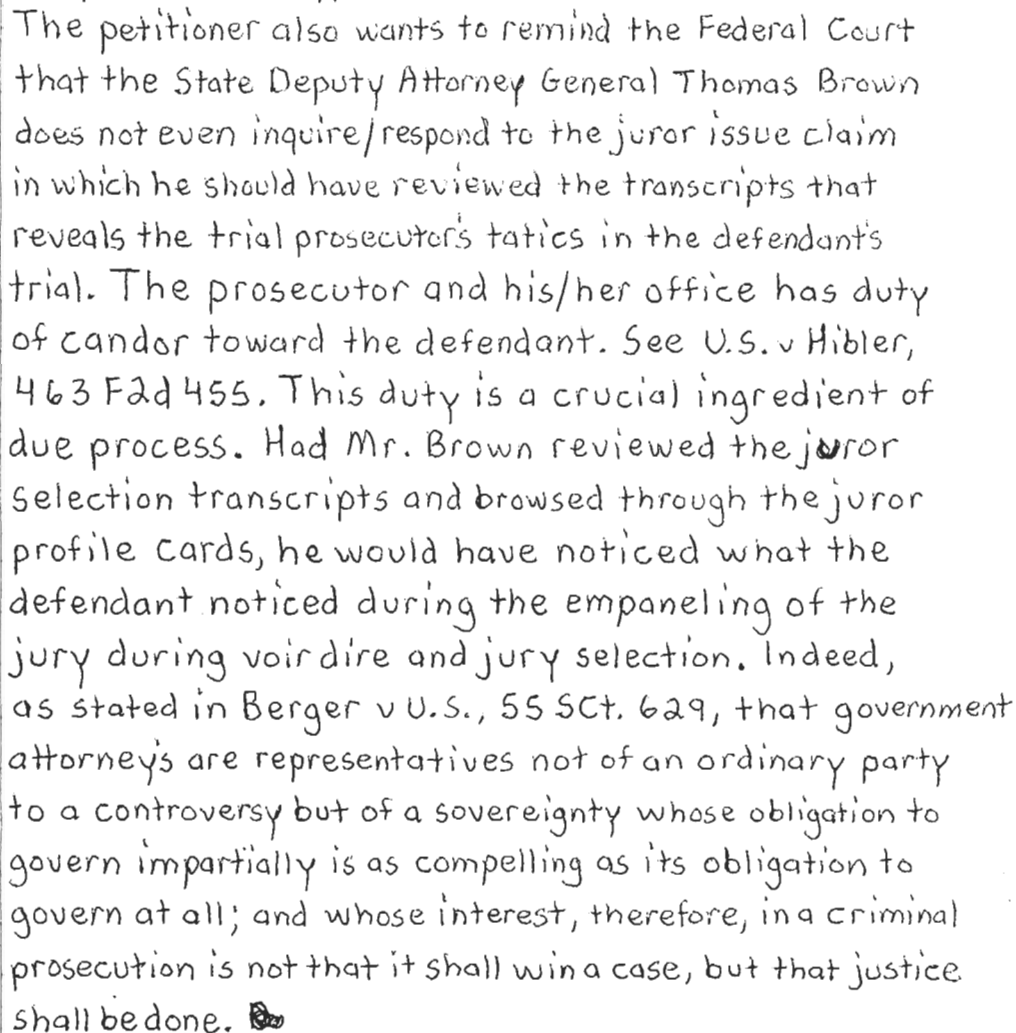 The petitioner also wants to remind the Federal Court
that the State Deputy Attorney General Thomas Brown
does not even inquire/respond to the juror issue claim
in which he should have reviewed the transcripts that
reveals the trial prosecutor's tatics in the defendant's
trial. The prosecutor and his/her office has duty
of candor toward the defendant. See U.S. v Hibler,
463 F2d 455. This duty is a crucial ingredient of
due process. Had Mr. Brown reviewed the juror
selection transcripts and browsed through the juror
profile cards, he would have noticed what the
defendant noticed during the empaneling of the
jury during voir dire and jury selection. Indeed,
as stated in Berger v U.S., 55 SCt. 629, that government
attorney's are representatives not of an ordinary party
to a controversy but of a sovereignty whose obligation to
govern impartially is as compelling as its obligation to
govern at all; and whose interest, therefore, in a criminal
prosecution is not that it shall win a case, but that justice
shall be done.